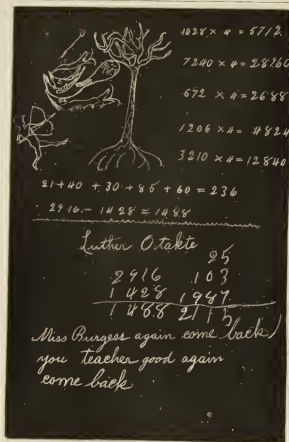 1428 × 4 = 5712
7240 × 4 = 28960
672 × 4 = 2688
1206 × 4 = 4824
3210 × 4 = 12.840
21 + 40 + 30 + 85 + 60 = 236
2916 - 1428 = 1488
Luther Otakte
25
2916 103
1428 1987
1488 2115
Miss Burgess again come back
you teacher good again
come back